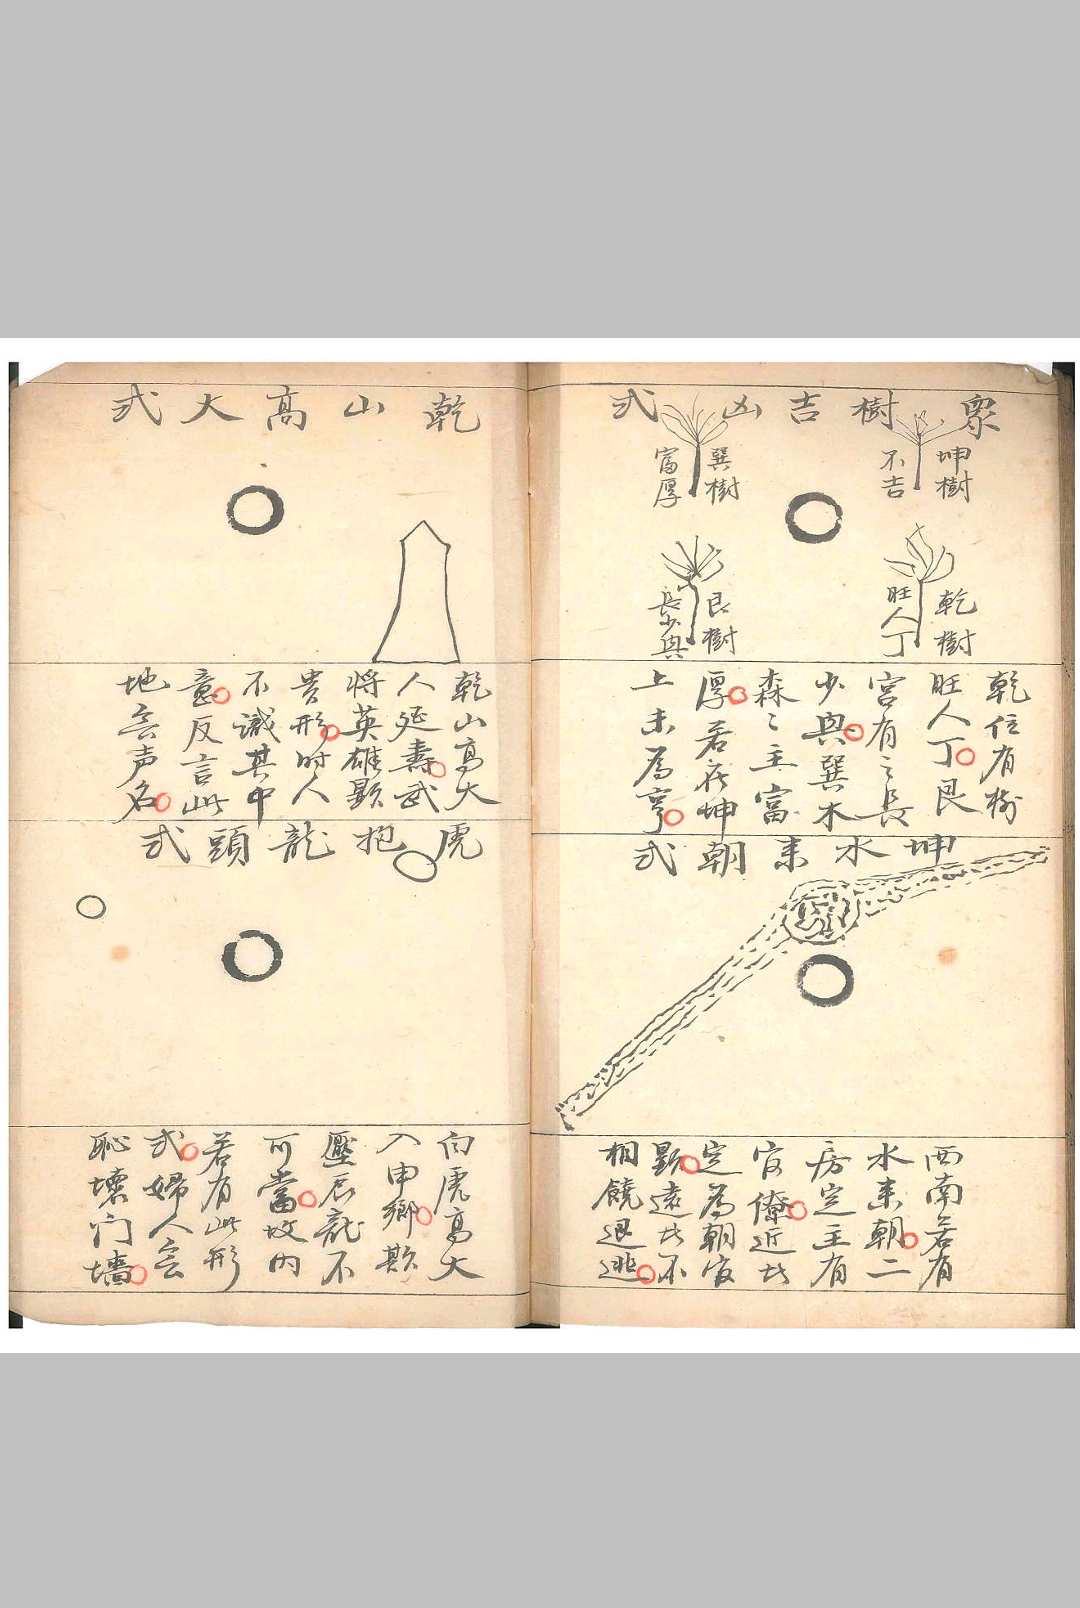 眾樹吉凶式
坤樹
不吉
巽樹
富厚
乾樹
旺人丁
艮樹
長少興
乾位有樹
旺人丁艮
宮有之長
少興巽木
森森主富
厚若在坤
上未為亨
坤水来朝式
西南若有
水来朝二
房定主有
官僚近步
定為朝官
顯遠步不
相饒退逃
乾山高大式
乾山高大
人延壽武
將英雄顯
贵形时人
不識其中
意反言此
地無声名
虎抱龍頭式
白虎高大
入申鄉欺
壓辰龍不
可當坟内
若有此形
式婦人無
恥壞门墙